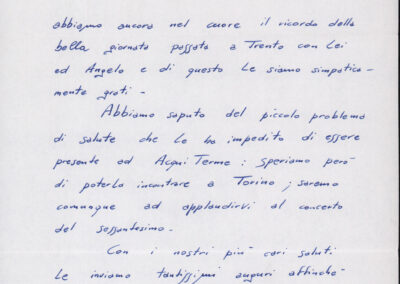 abbiamo ancora nel cuore il ricordo della
bella giornata passata a Trento con Lei
ed Angelo e di questo Le siamo simpatica-
mente grati -
Abbiamo saputo del piccolo problema
di salute che Le ha impedito di essere
presente ad Acqui Terme : speriamo però
di poterla incontrare a Torino ; saremo
comunque ad applaudirvi al concerto
del sessantesimo.
Con i nostri più cari saluti
Le inviamo tantissimi auguri affinché